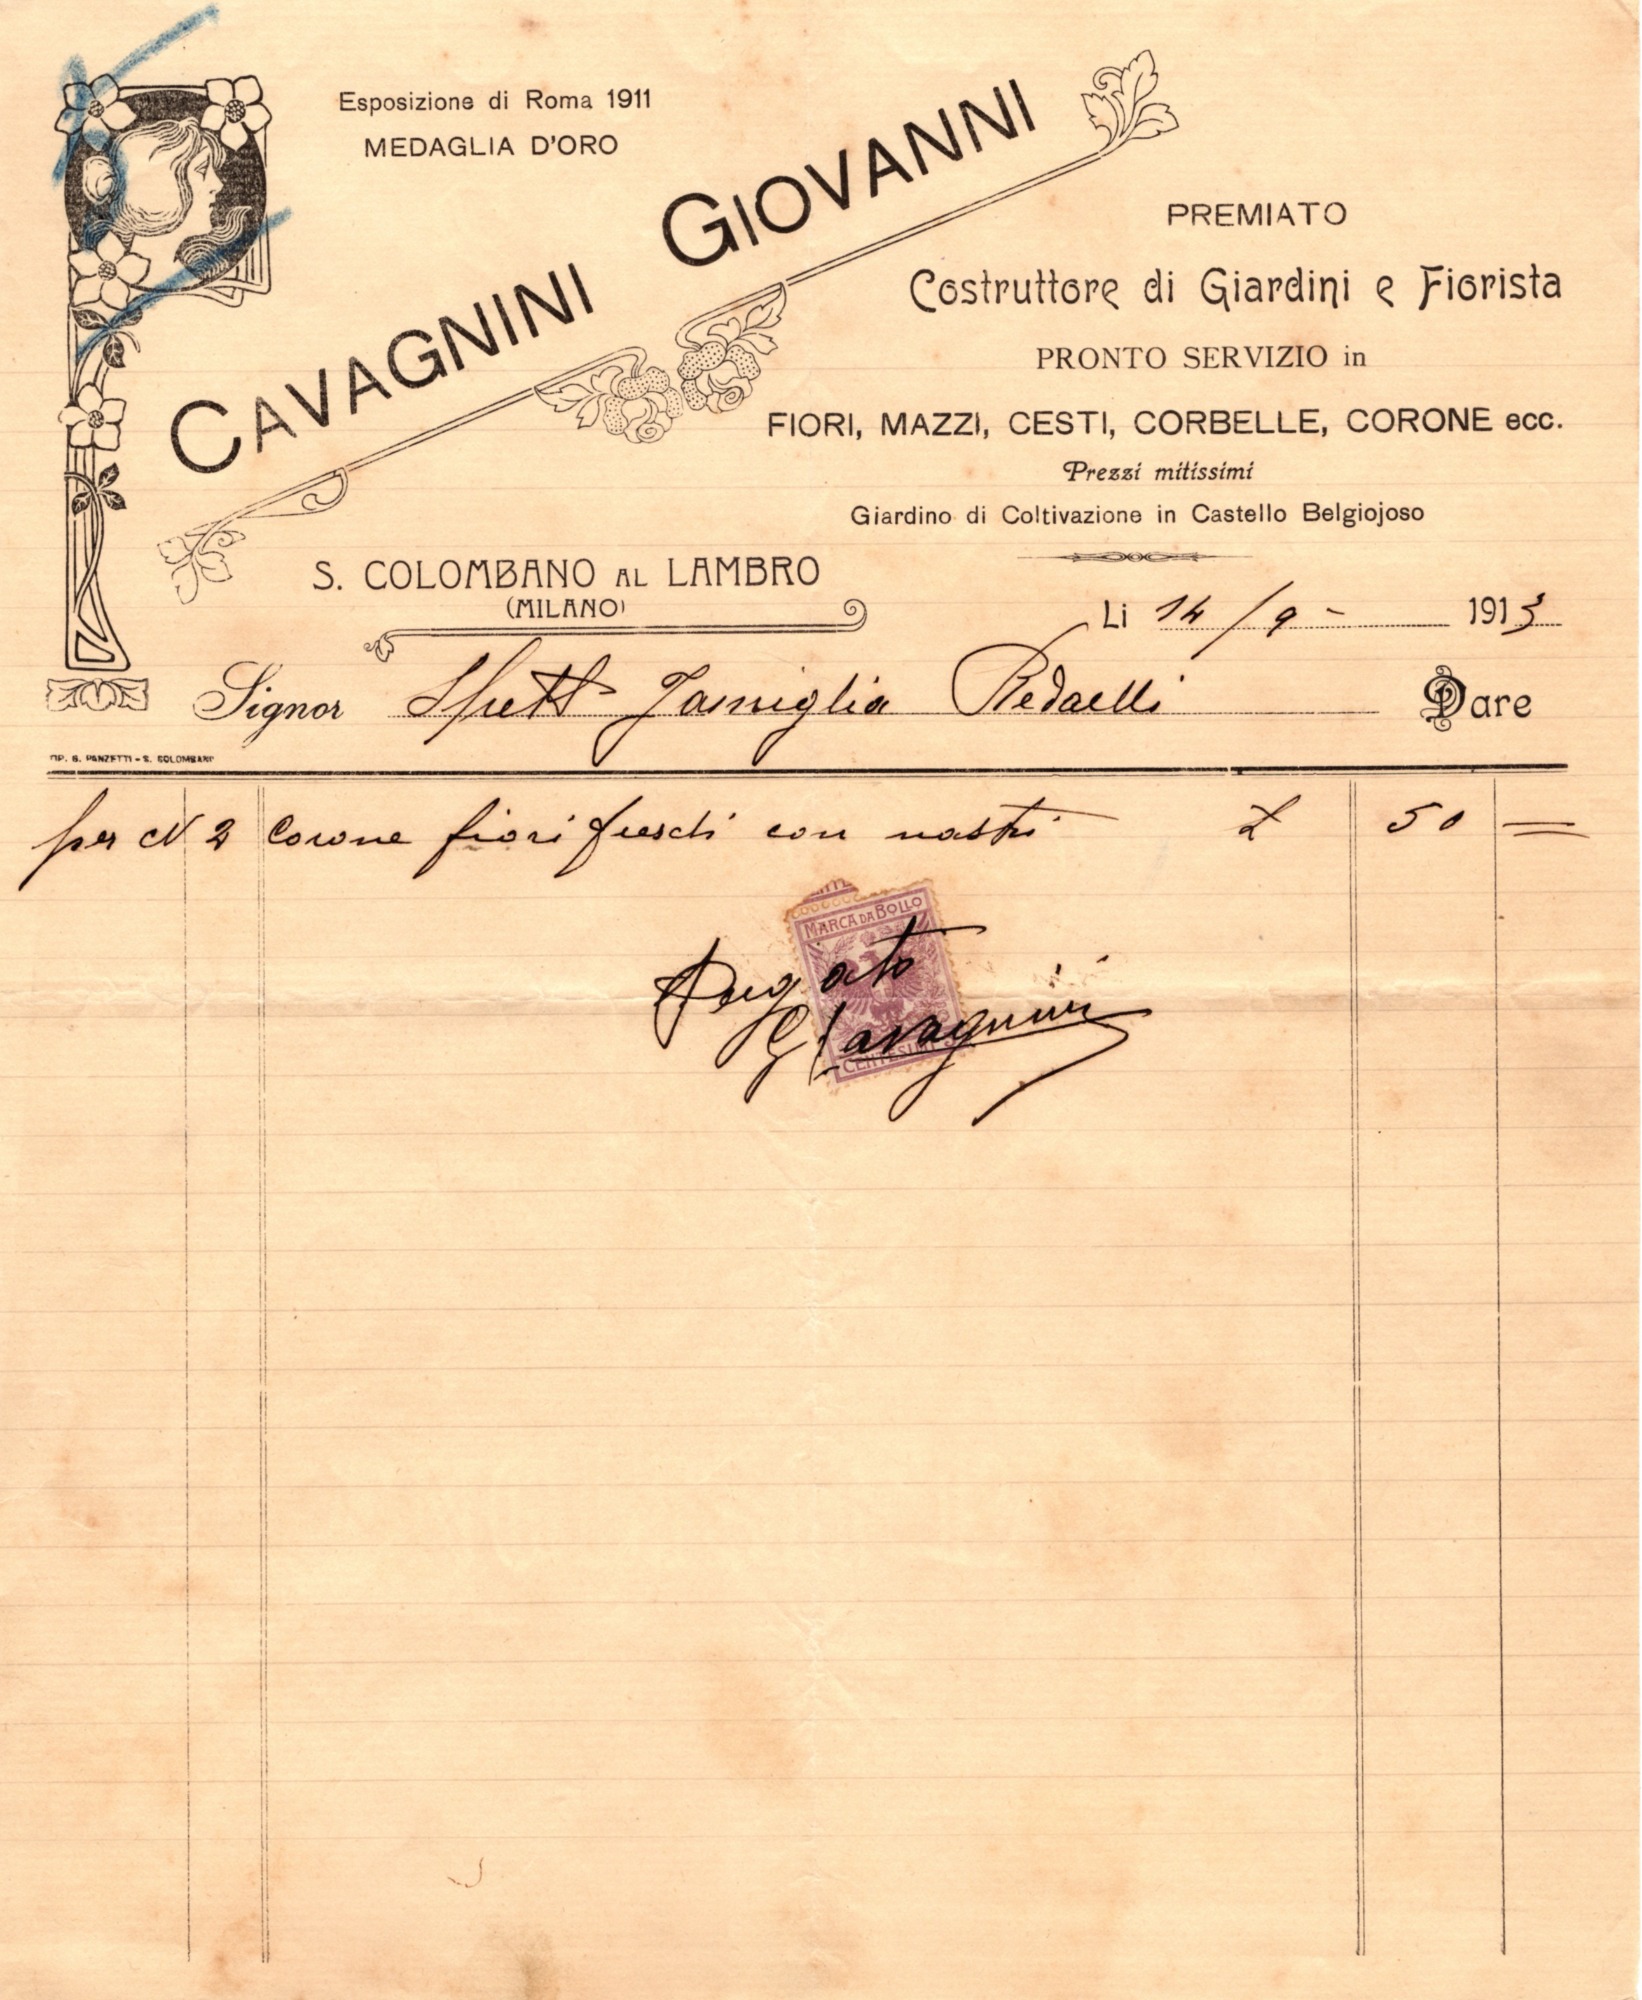 Esposizione di Roma 1911
MEDAGLIA D'ORO
CAVAGNINI GIOVANNI
PREMIATO
Costruttore di Giardini e Fiorista
PRONTO SERVIZIO in
FIORI, MAZZI, CESTI, CORBELLE, CORONE ecc.
Prezzi mitissimi
Giardino di Coltivazione in Castello Belgiojoso
S. COLOMBANO AL LAMBRO
(MILANO)
Li 14/9- 1913
Signor Spett Famiglia Redaelli Dare
TIP. G. PANZETTI - S. COLOMBANO
per N 2 Corone fiori freschi con nastri £ 50 =
MARCA DA BOLLO
Pagato
G Cavagnini
CENTESIMI